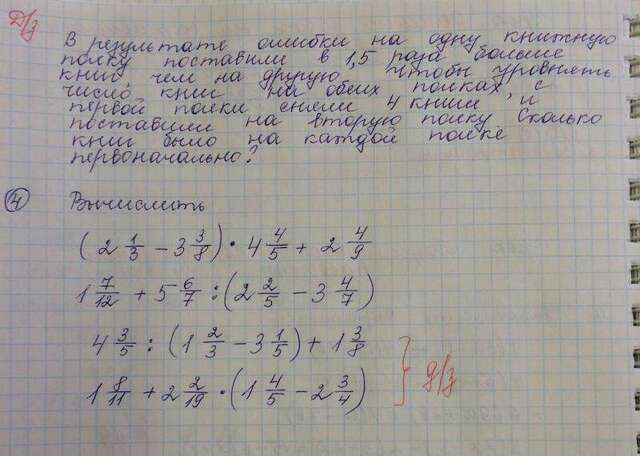 Д/з
В результате ошибки на одну книжную
полку поставили в 1,5 раза больше
книг, чем на другую. Чтобы уравнять
число книг на обеих полках, с
первой полки сняли 4 книги и
поставили на вторую полку. Сколько
книг было на каждой полке
первоначально?
④ Вычислить
(2 1/3 − 3 3/8) · 4 4/5 + 2 4/9
1 7/12 + 5 6/7 : (2 2/5 − 3 4/7)
4 3/5 : (1 2/3 − 3 1/5) + 1 3/8
1 8/11 + 2 2/19 · (1 4/5 − 2 3/4)
д/з